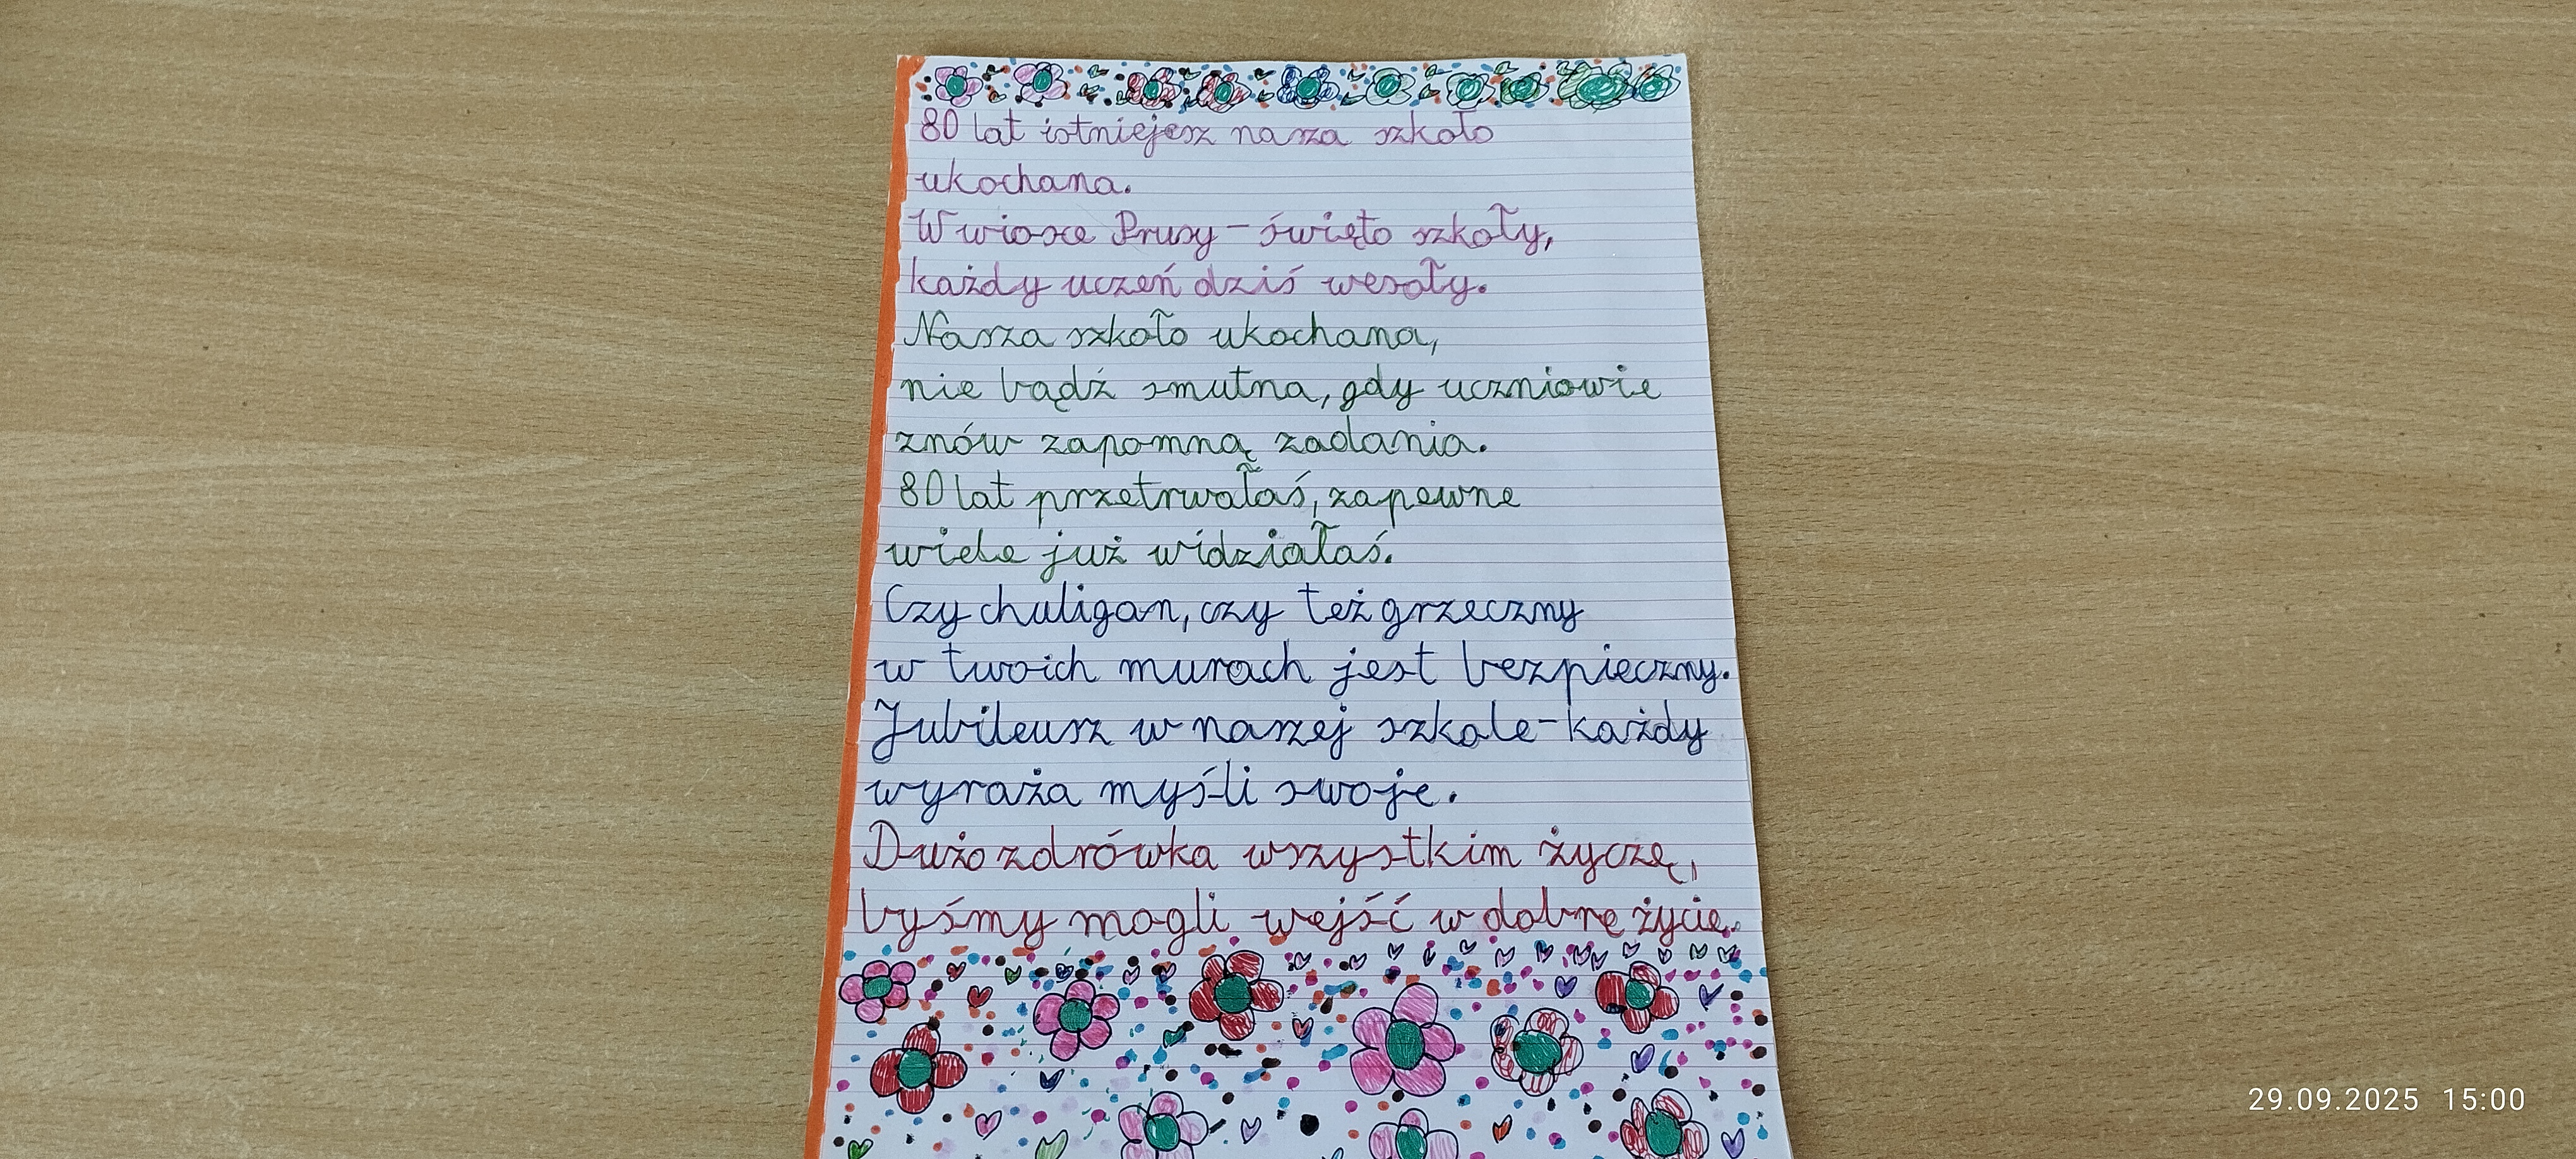 80 lat istniejesz nasza szkoło
ukochana.
W wiosce Prusy - święto szkoły,
każdy uczeń dziś wesoły.
Nasza szkoło ukochana,
nie bądź smutna, gdy uczniowie
znów zapomną zadania.
80 lat przetrwałaś, zapewne
wiele już widziałaś.
Czy chuligan, czy też grzeczny
w twoich murach jest bezpieczny.
Jubileusz w naszej szkole - każdy
wyraża myśli swoje.
Dużo zdrówka wszystkim życzę,
byśmy mogli wejść w dobre życie.
29.09.2025 15:00